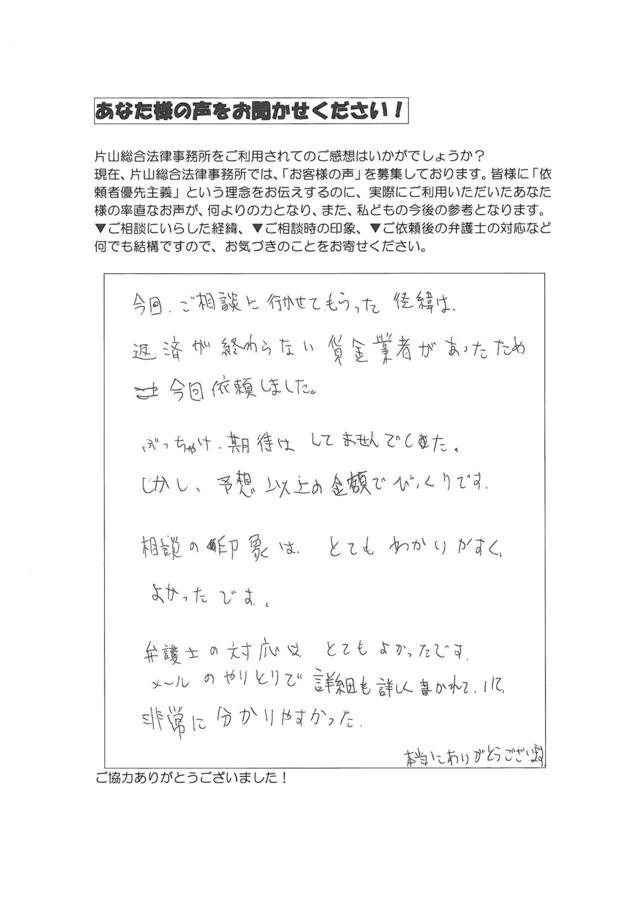 あなた様の声をお聞かせください！
片山総合法律事務所をご利用されてのご感想はいかがでしょうか？
現在、片山総合法律事務所では、「お客様の声」を募集しております。皆様に「依
頼者優先主義」という理念をお伝えするのに、実際にご利用いただいたあなた
様の率直なお声が、何よりの力となり、また、私どもの今後の参考となります。
▼ご相談にいらした経緯、▼ご相談時の印象、▼ご依頼後の弁護士の対応など
何でも結構ですので、お気づきのことをお寄せください。
今回、ご相談に行かせてもらった経緯は、
返済が終わらない貸金業者があったため
今回依頼しました。
ぶっちゃけ、期待はしてませんでした。
しかし、予想以上の金額でびっくりです。
相談の印象は、とてもわかりやすく、
よかったです。
弁護士の対応は、とてもよかったです。
メールのやりとりで詳細も詳しく書かれていて、
非常に分かりやすかった。
本当にありがとうございます。
ご協力ありがとうございました！